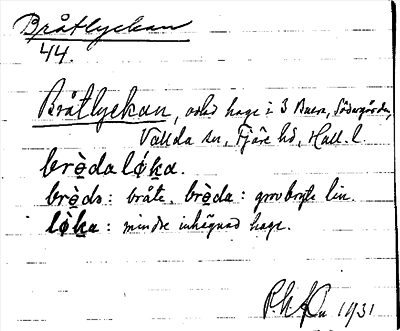 Bråtlyckan
44.
Bråtlyckan, odlad hage i 3 Backa, Södergården,
Vallda sn, Fjäre hd, Hall. l.
brèdalo̍ka.
brèda: bråte. brèda: grovbryta lin.
lo̍ka: mindre inhägnad hage.
1931